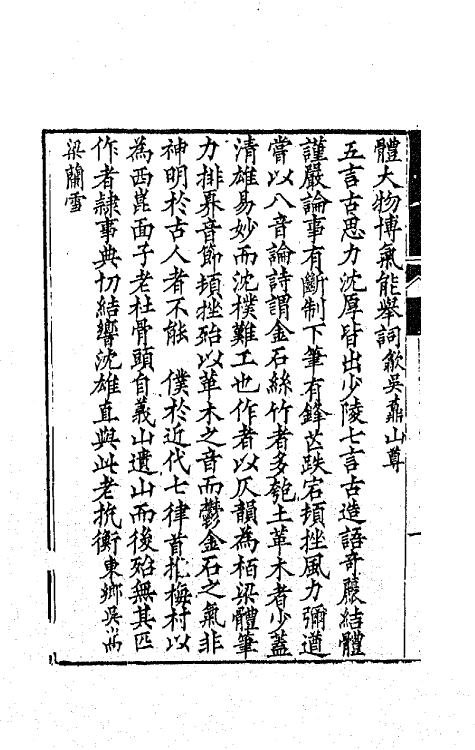 體大物博氣能舉詞歙吳鼒山尊
五言古思力沈厚皆出少陵七言古造語奇麗結體
謹嚴論事有斷制下筆有鋒芒跌宕頓挫風力彌遒
嘗以八音論詩謂金石絲竹者多匏土革木者少蓋
清雄易妙而沈樸難工也作者以仄韻為栢梁體筆
力排奡音節頓挫殆以革木之音而鬱金石之氣非
神明於古人者不能　僕於近代七律首推梅村以
為西崑面子老杜骨頭自義山遺山而後殆無其匹
作者隸事典切結響沈雄直與此老抗衡東鄉吳嵩
梁蘭雪